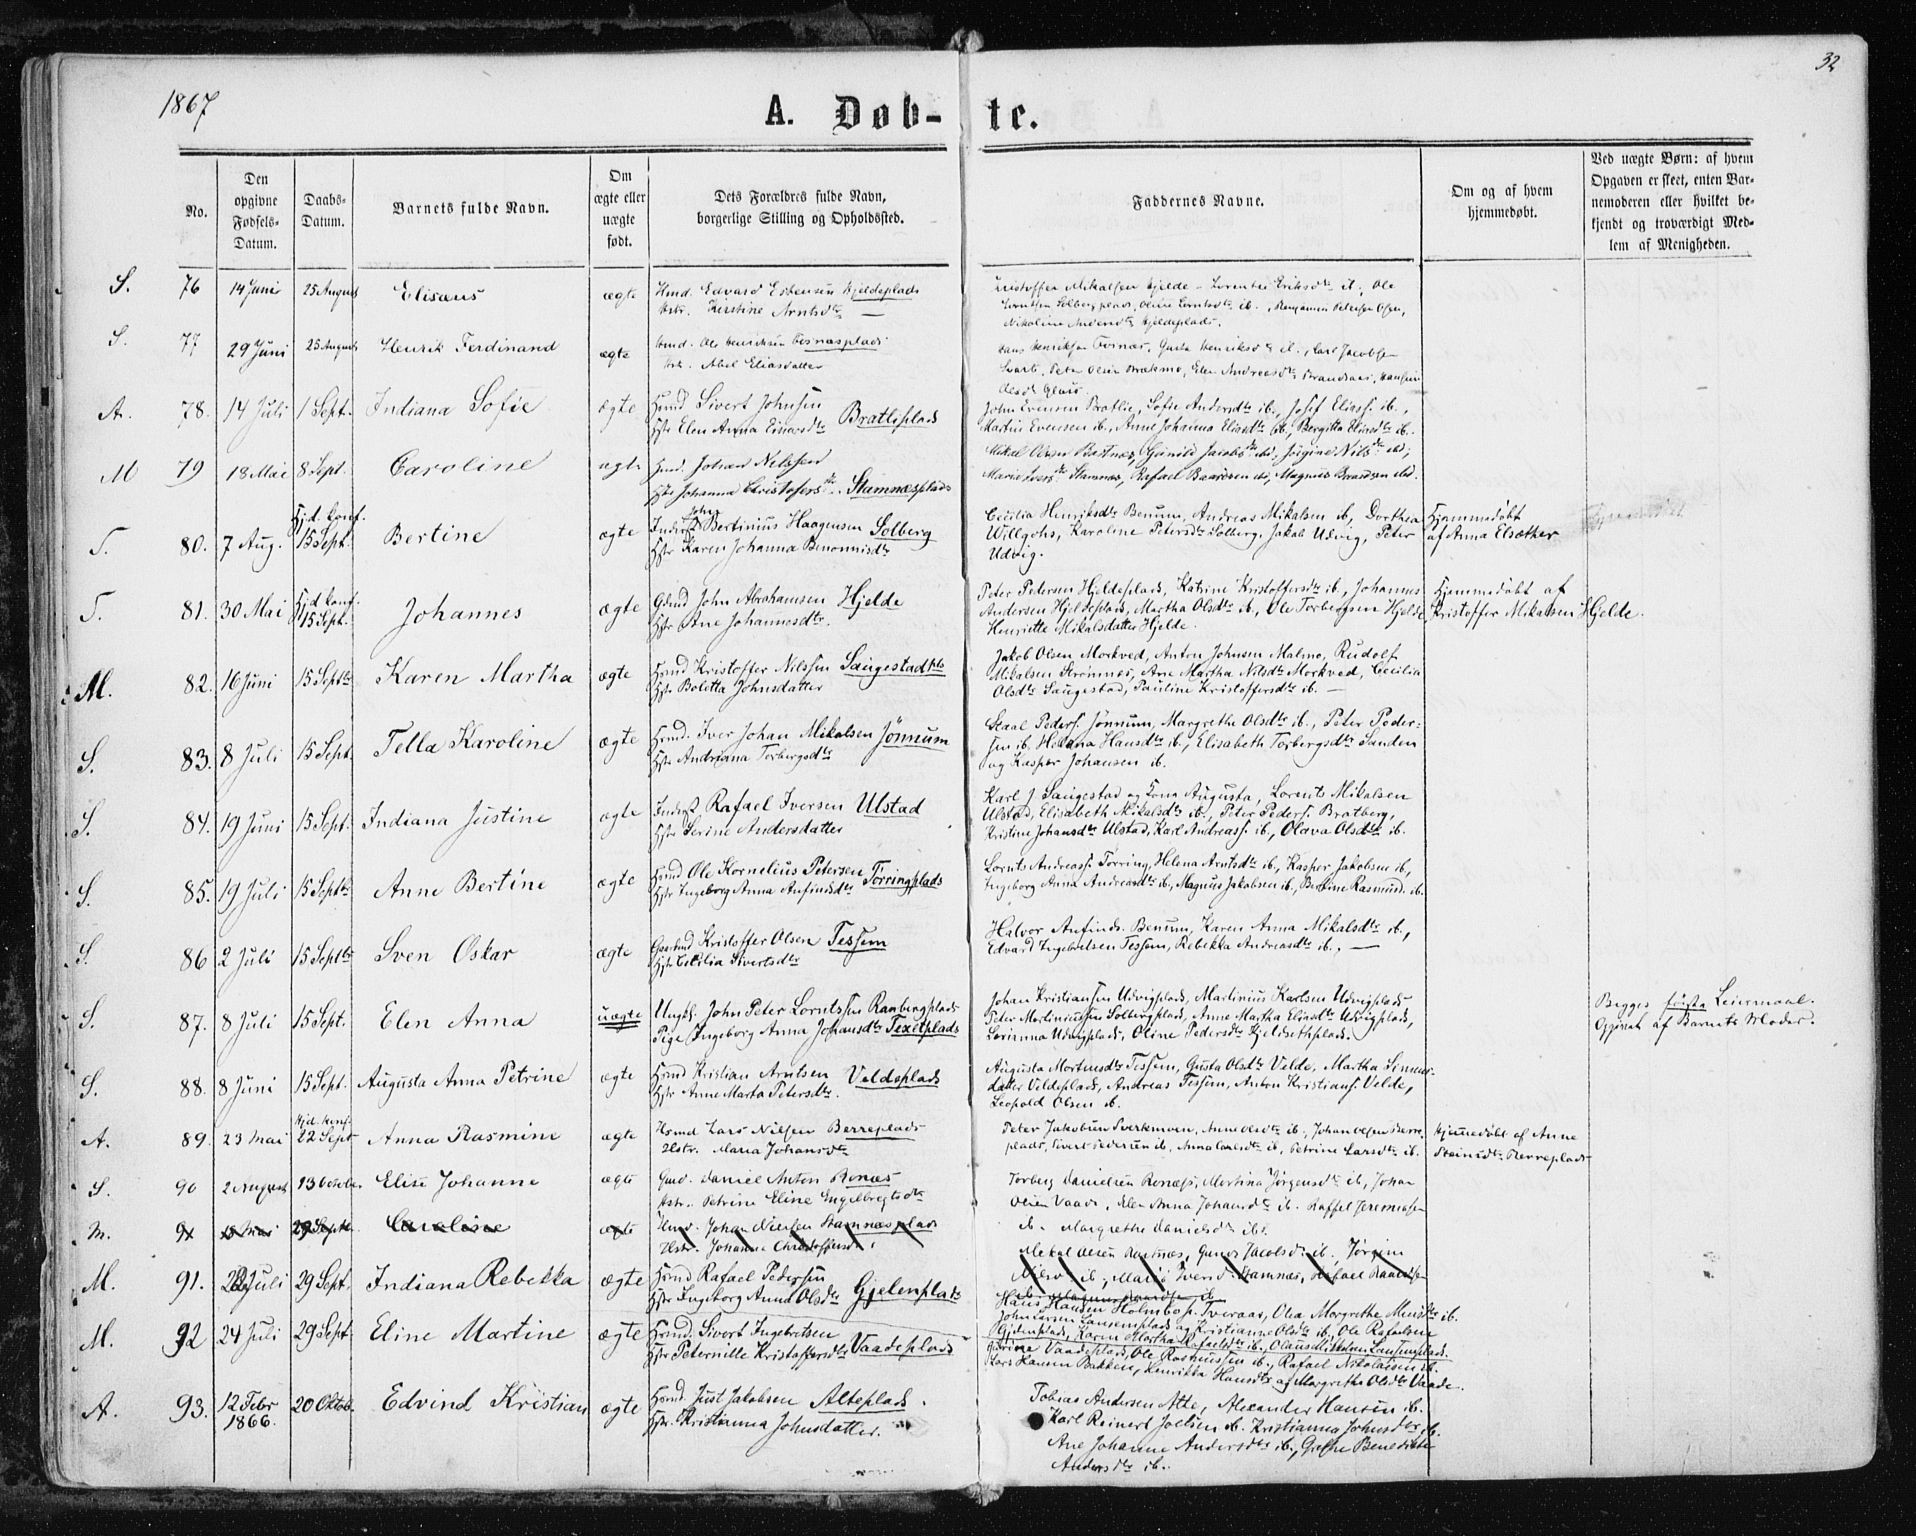 1867
32
A. Døb- te.
No.
Den opgivne Fødsels-Datum.
Daabs-Datum.
Barnets fulde Navn.
Om ægte eller uægte født.
Dets Forældres fulde Navn, borgerlige Stilling og Opholdssted.
Faddernes Navne.
Om og af hvem hjemmedøbt.
Ved uægte Børn: af hvem Opgaven er skeet, enten Barnemoderen eller hvilket bekjendt og troværdigt Medlem af Menigheden.
S. 76 14 Juni 25 August Elisæus ægte Hmd. Edvard Estensen Hjeldeplads
Hstr. Kirstine Arntsdtr —
Kristoffer Mikalsen Hjelde - Lorentse Eriksdtr ib., Ole
Lorntsen Solbergplads, Oline Lorntsdtr ib., Benjamin Petersen Olsen,
Nikoline Andersdtr Hjeldeplads.
S. 77 29 Juni 25 August Henrik Ferdinand ægte Hmd. Ole Henriksen Tvinæsplads
Hstr. Abel Eliasdatter
Hans Henriksen Tvinæs, Gusta Henriksdtr ib., Carl Jacobsen
Svarte, Peter Olsen Brækmo, Elen Andreasdtr Brandsaas, Hansine
Olsdtr
A. 78. 14 Juli 1 Sept. Indiana Sofie ægte Hsmd Sivert Johnsen
Hstr Elen Anna Einarsdtr Bratliplads
John Evensen Bratlie, Sofie Andersdtr ib., Josef Eliass. ib.,
Martin Evensen ib., Anne Johanna Eliasdtr ib., Bergitta Eliasdtr ib.
M 79 18 Mai 8 Sept. Caroline ægte Hmd. Johan Nilssen
Hstr Johanna Christofersdtr. Stamnæsplads
Mikal Olsen Bartnæs, Gunild Jacobsdtr ibd, Jørgine Nilsdtr ibd,
Marie Iversdtr Stamnæs, Rafael Baardsen ibd, Magnus Baardsen ibd.
S. 80. 7 Aug. Hjd. Conf. 15 Sept. Bertine ægte Inderst John Bertinius Haagensen Solberg
Hstr Karen Johanna Benonnisdtr
Cecilia Henriksdtr Benum, Andreas Mikalsen ib, Dorthea
Willgohs, Karoline Petersdtr Solberg, Jakob Udvig, Peter
Udvig.
Hjemmedøbt
af Anna Elsæther
S. 81. 30 Mai Hjd Conf. 15 Sept. Johannes ægte Gdmd John Abrahamsen Hjelde
Hstr Ane Johannesdtr.
Peter Petersen Hjeldeplads, Katrine Kristoffersdtr ib., Johannes
Andersen Hjeldeplads, Martha Olsdtr ib., Ole Torbergsen Hjelde
Henriette Mikalsdatter Hjelde.
Hjemmedøbt af
Kristoffer Mikalsen Hjelde.
M. 82. 16 Juni 15 Septbr Karen Martha ægte Hsmd Kristoffer Nilssen Saugestadpls
Hstr Boletta Johnsdatter
Jakob Olsen Morkved, Anton Johnsen Malmo, Rudolf
Mikalsen Strømnes, Ane Martha Nilsdtr Morkved, Cecilia
Olsdtr Saugestad, Pauline Kristoffersdtr ib. —
S. 83. 8 Juli 15 Sept. Tella Karoline ægte Hsmd. Iver Johan Mikalsen Jønnum
Hstr Andriana Torbergsdtr
Staal Peders. Jønnum, Margrethe Olsdtr ib., Peter Peder-
sen ib. Helena Hansdtr ib., Elisabeth Torbergsdtr Sanden
og Kasper Johansen ib.
S. 84. 19 Juni 15 Sept. Indiana Justine ægte Inderst Rafael Iversen Ulstad
Hstr Serine Andersdatter
Karl J Saugestad og Kona Augusta, Lorents Mikalsen
Ulstad, Elisabeth Mikalsdtr ib., Peter Peders. Bratberg,
Kristine Johansdtr Ulstad, Karl Andreass. ib., Olava Olsdtr ib.
S. 85. 19 Juli 15 Septbr Anne Bertine ægte Hsmd Ole Kornelius Petersen Tørringplads
Hstr Ingeborg Anna Anfindsdtr
Lornts Andreass. Tørring, Helena Arntsdtr ib, Kasper Jakobsen ib,
Ingeborg Anna Andreasdtr ib., Magnus Jakobsen ib., Bertine Rasmusd. ib.
S. 86 2 Juli 15 Septbr Sven Oskar ægte Gaardmd Kristoffer Olsen Tessem
Hstr Cecilia Sivertsdtr
Halvor Anfinds. Benum, Karen Anna Mikalsdtr ib.,
Edvard Ingebrektsen Tessem, Rebekka Andreasdtr ib. —
S. 87. 8 Juli 15 Sept. Elen Anna uægte Ungk. John Peter Lorntsen Ranbergplads
Pige Ingeborg Anna Johansdtr Texetplads
Johan Kristiansen Udvigplads, Martinius Karlsen Udvigplads
Peter Martiniussen Solbergplads, Anne Martha Eliasdtr Udvigplads,
Lorianna Udvigplads, Oline Pedersdtr Hjeldsethplads.
Begges første Leiermaal.
Opgivet af Barnets Moder.
S. 88. 8 Juni 15 Sept. Augusta Anna Petrine ægte Hsmd Kristian Arntsen Veldeplads
Hstr Anne Marta Petersdtr.
Augusta Mortensdtr Tessem, Gusta Olsdtr Velde, Martha Simons-
datter Veldeplads, Andreas Tessem, Anton Kristians. Velde,
Leopold Olsen ib.
A. 89. 23 Mai Hjd. Konf. 22 Sept Anna Rasmine ægte Hsmd Lars Nilsen Berreplads
Hstr. Maria Johansdtr
Peter Jakobsen Sverkmoen, Anne Olsdtr ib., Johan Olsen Berre-
plads, Sivert Pedersen ib, Anna Larsdtr ib, Petrine Larsdtr ib.
Hjemmedøbt af Anne
Steinsdtr Berreplads
S. 90 2 August 13 October Elise Johanne ægte Gmd. Daniel Anton Ronæs
Hstr. Petrine Eline Engelbregtsdtr
Torberg Danielsen Ronæs, Martina Jørgensdtr ib, Johan
Olsen Vaade, Elen Anna Johansdtr ib. Raffel Jeremiasen
ib. Margrethe Danielsdtr ib.
M. 91 18 Mai 29 Septbr Caroline ægte Hmd. Johan Nielsen Stamnæsplads
Hstr. Johanna Christoffersd.
Mekal Olsen Bartnæs, Gunild Jacobsd. ib. Jørgine
Nilsd. ib., Maria Iversd. Stamnæs, Rafael Baardsen
ib. Magnus Baardsen ib
M. 91. 28 Juli 29 Sept. Indiana Rebekka ægte Hsmd Rafael Pedersen
Hstr Ingeborg Anna Olsdtr Gjelenplads
Hans Hansen Holmbo p. Tveraas, Olea Margrethe ib.
John Larsenplads og Kristianne Olsdtr ib, Ole Rafaelsen
Gjelenplads, Karen Martha Rafaelsdtr ib., Olaus Mikkelsen Lansemplads.
M. 92 24 Juli 29 Sept. Eline Martine ægte Hsmd. Sivert Ingebritsen
Hstr Peternille Kristoffersdtr Vaadeplads
Vaadeplads, Ole Rasmussen ib., Rafael Nikolaisen ib.
Lars Hansen Bakken, Henrikka Hansdtr og Margrethe Olsdtr Vaade.
A. 93. 12 Febr 1866. 20 Oktob. Edvind Kristian ægte Hsmd. Just Jakobsen Alteplads.
Hstr. Kristianna Johnsdatter.
Tobias Andersen Alte, Alexander Hansen ib.
Karl Reinert Joelsen ib. Kristianna Johnsdtr ib.
Ane Johanne Andersdtr ib., Grethe Benedikte
Andersdtr ib.